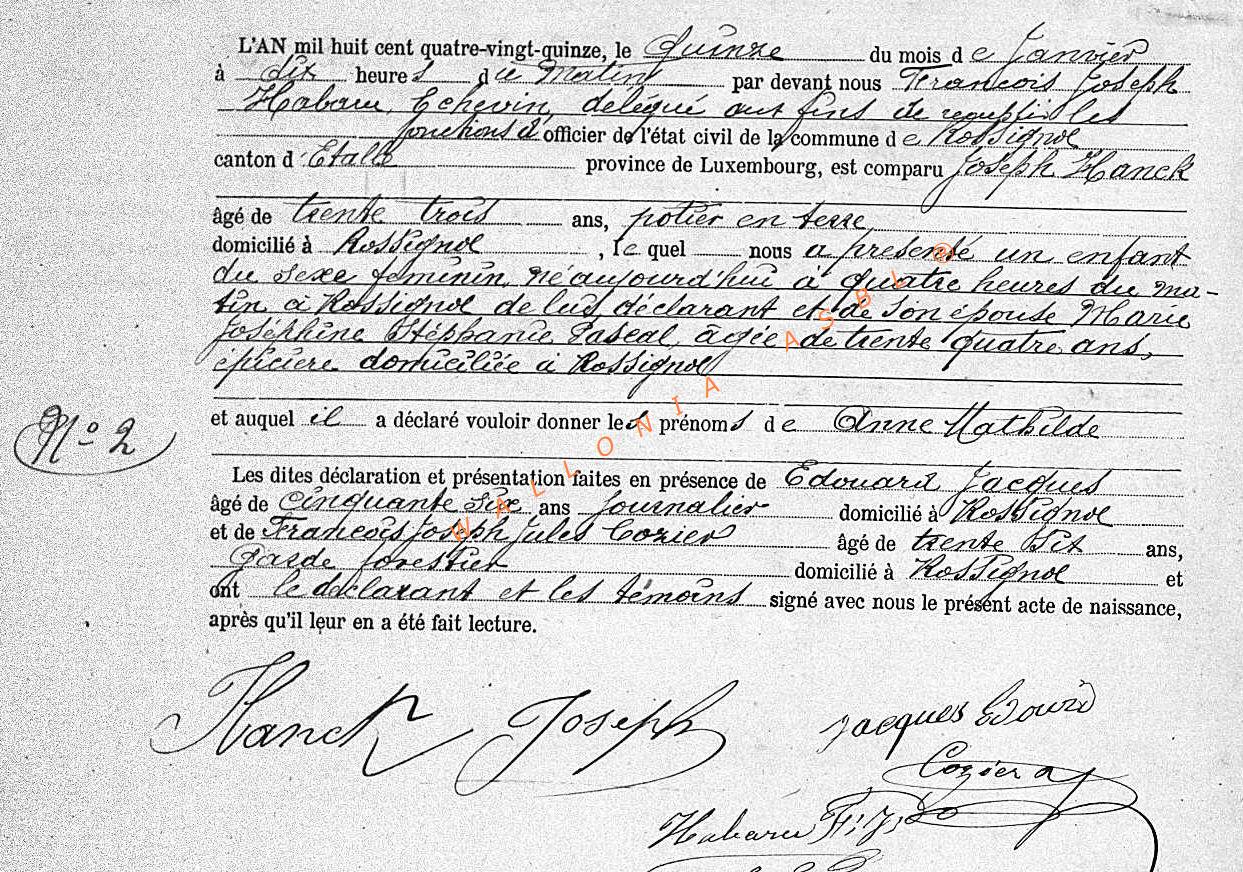 L'AN mil huit cent quatre-vingt-quinze, le Quinze du mois de Janvier
à dix heures du Matin par devant nous François Joseph
Habaru, Echevin, délégué aux fins de remplir les
fonctions d'officier de l'état civil de la commune de Rossignol
canton d'Etalle province de Luxembourg, est comparu Joseph Hanck
âgé de trente trois ans, potier en terre
domicilié à Rossignol, lequel nous a présenté un enfant
du sexe feminin, né aujourd'hui à quatre heures du ma-
tin à Rossignol de lui déclarant et de son épouse Marie
Joséphine Stéphanie Pascal, agée de trente quatre ans,
épiciere domiciliée à Rossignol
N° 2
et auquel il a déclaré vouloir donner les prénoms de Anne Mathilde
Les dites déclaration et présentation faites en présence de Edouard Jacques
âgé de cinquante six ans journalier domicilié à Rossignol
et de François Joseph Jules Cozier âgé de trente six ans,
garde forestier domicilié à Rossignol et
ont le déclarant et les témoins signé avec nous le présent acte de naissance,
après qu'il leur en a été fait lecture.
WALLONIA ASBL @
Hanck Joseph
Jacques Edouard
Cozier
Habaru F. J.